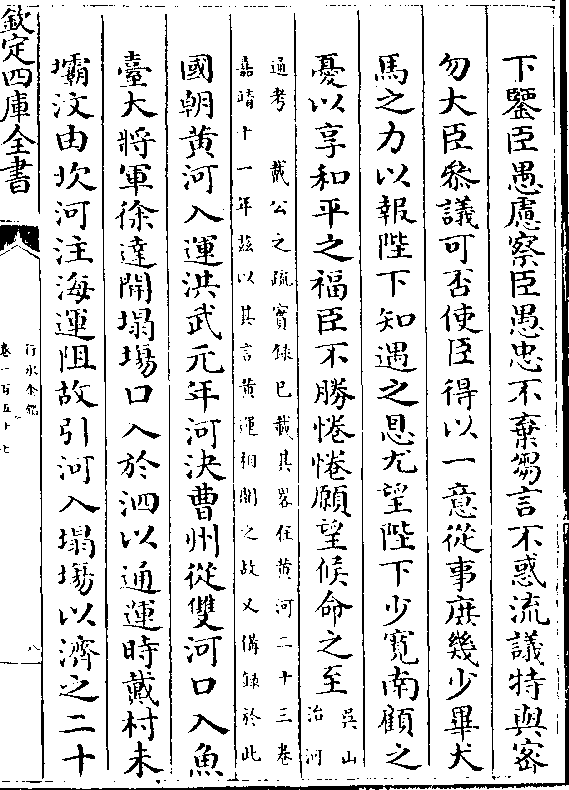 下鑒臣愚慮察臣愚忠不棄芻言不惑流議特與密
勿大臣叅議可否使臣得以一意從事庶幾少畢犬
馬之力以報陛下知遇之恩尤望陛下少寛南顧之
憂以享和平之福臣不勝惓惓願望候命之至吳山治河
通考 載公之疏實録已載其畧在黄河二十三卷
嘉靖十一年兹以其言黄運相關之故又備録於此
國朝黄河入運洪武元年河決曹州從雙河口入魚
臺大將軍徐達開塌塲口入於泗以通運時戴村未
壩汶由坎河注海運阻故引河入塌塲以濟之二十
欽定四庫全書
行水金鑑
卷一百五十七
八